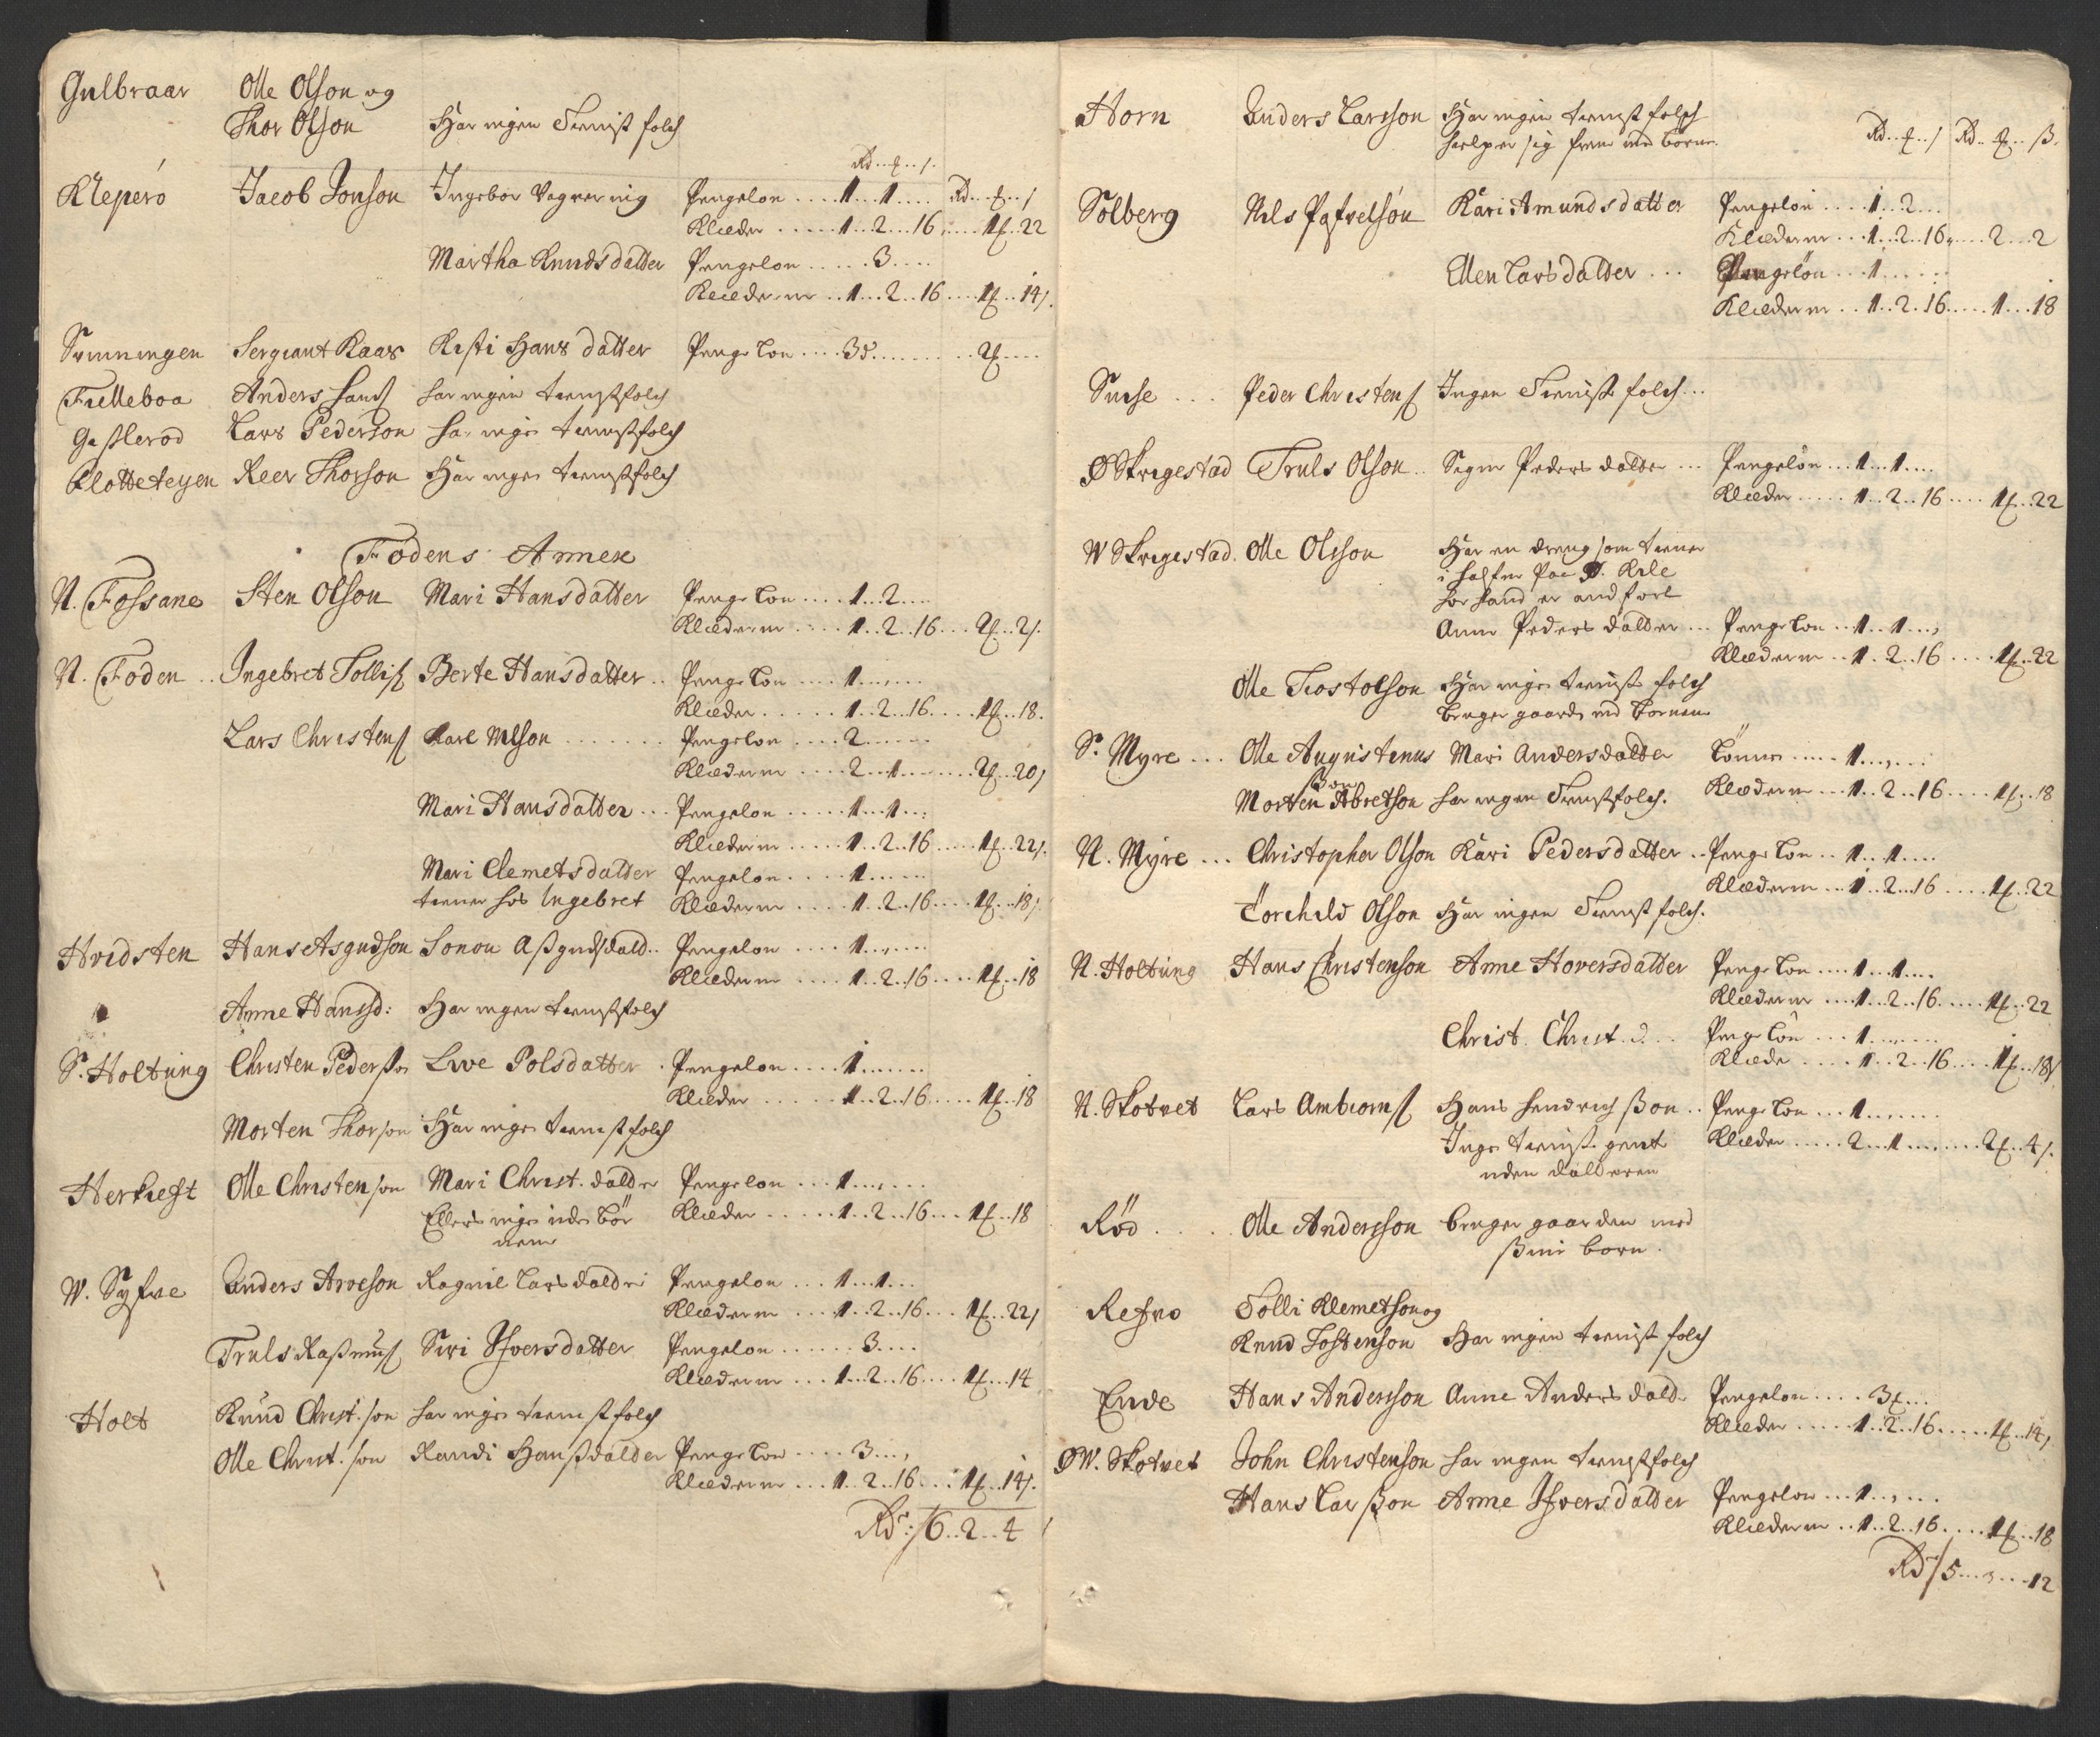 Gulbraar Olle Olson og
Thor Olson Har ingen Tienist folch
Rd
Klepero Jacob Jonson Ingebor Pengelon 1 1 Rd
Klæder 1 2 16 1 22
Martha Knudsdatter Pengelon 3
Klæderne 1 2 16 1 14
Sergiant Kaas Kisti Hans datter Penge Lon 3 2
Tielleboa Anders har ingen tienistfolch
Lars Pederson har ingen tienistfolch
Klottetegen Reer Thorson Har ingen tienistfolch
Födens Annex
N. Fossane Sten Olson Mari Hansdatter Penge Lon 1 2
Klæderne 1 2 16 2 2
N. Foden Ingebret Berte Hansdatter Penge Lon 1
Klæder 1 2 16 1 18
Lars Christens Karl Nilson Pengelon 2
Klæderne 2 1 2 20
Mari Hansdatter Pengelon 1 1
Klæderne 1 2 16 1 22
Mari Clemetsdatter Pengelon 1
tiener hos Ingebret Klæderne 1 2 16 1 18
Hvidsten Hans Asgudson Pengelon 1
Klæderne 1 2 16 1 18
Anne Hansd: Har ingen tienistfolch
S. Holtung Christen Pederson Live Polsdatter Pengelon 1
Klæder 1 2 16 1 18
Morten Thorson Har ingen tienist folch
Olle Christenson Mari Christ. datter Pengelon 1
Ellers ingen uden Bör Klæder 1 2 16 1 18
nene
W. Syfve Anders Arveson Ragnil Larsdatter Pengelon 1 1
Klæderne 1 2 16 1 22
Truls Rasmus Siri Ifversdatter Pengelon 3
Klæderne 1 2 16 1 14
Holt Knud Christ. son har ingen tienist folch
Olle Christ. son Randi Hansdatter Penge Lon 3
Klæderne 1 2 16 1 14
Rd: 16 2 4
Horn Anders Larsson Har ingen tienist folch
hielper sig frem med börne Rd Rd ß
Solberg Nils Kari Amundsdatter Pengelön 1 2
Klæderne 1 2 16 2 2
Ellen Larsdatter Pengelön 1
Klæderne 1 2 16 1 18
Peder Christens Ingen Tienist folch
Ø Skrigestad Truls Olson Peders datter Pengelön 1 1
Klæder 1 2 16 1 22
W Skrigestad Olle Olsson Har en dreng som tiener

Anne Peders datter Penge Lon 1 1
Klæderne 1 2 16 1 22
Olle Tostolson Har ingen tienist folch
bruger gaarden med börnene
S. Myre Olle Augustinus Mari Andersdatter Lönnen 1
Morten Abretson har ingen Tienistfolch. Klæderne 1 2 16 1 18
N. Myre Christopher Olson Kari Pedersdatter Penge Lon 1 1
Klæderne 1 2 16 1 22
Torchild Olson Har ingen Tienist folch.
N. Holtung Hans Christenson Anne Hoversdatter Penge Lon 1 1
Klæderne 1 2 16 1 22
Christ. Christ. d. Penge Lön 1
Klæder 1 2 16 1 18
N. Skotvet Lars Ambiorns Hans Hendrich ßon Penge Lon 1
Ingen tienist. Klæder 2 1 2 4
uden datteren
Röd Olle Andersson bruger gaarden med
ßine born
Refno Tolli Klemetson og
Knud Tostenson Har ingen tienist folch
Ende Hans Andersson Anne Anders datt: Pengelon 3
Klæder 1 2 16 1 14
ØW. Skotvet John Christenson har ingen tienistfolch
Hans Larßon Anne Ifversdatter Pengelon 1
Klæderne 1 2 16 1 18
Rd 15 3 12